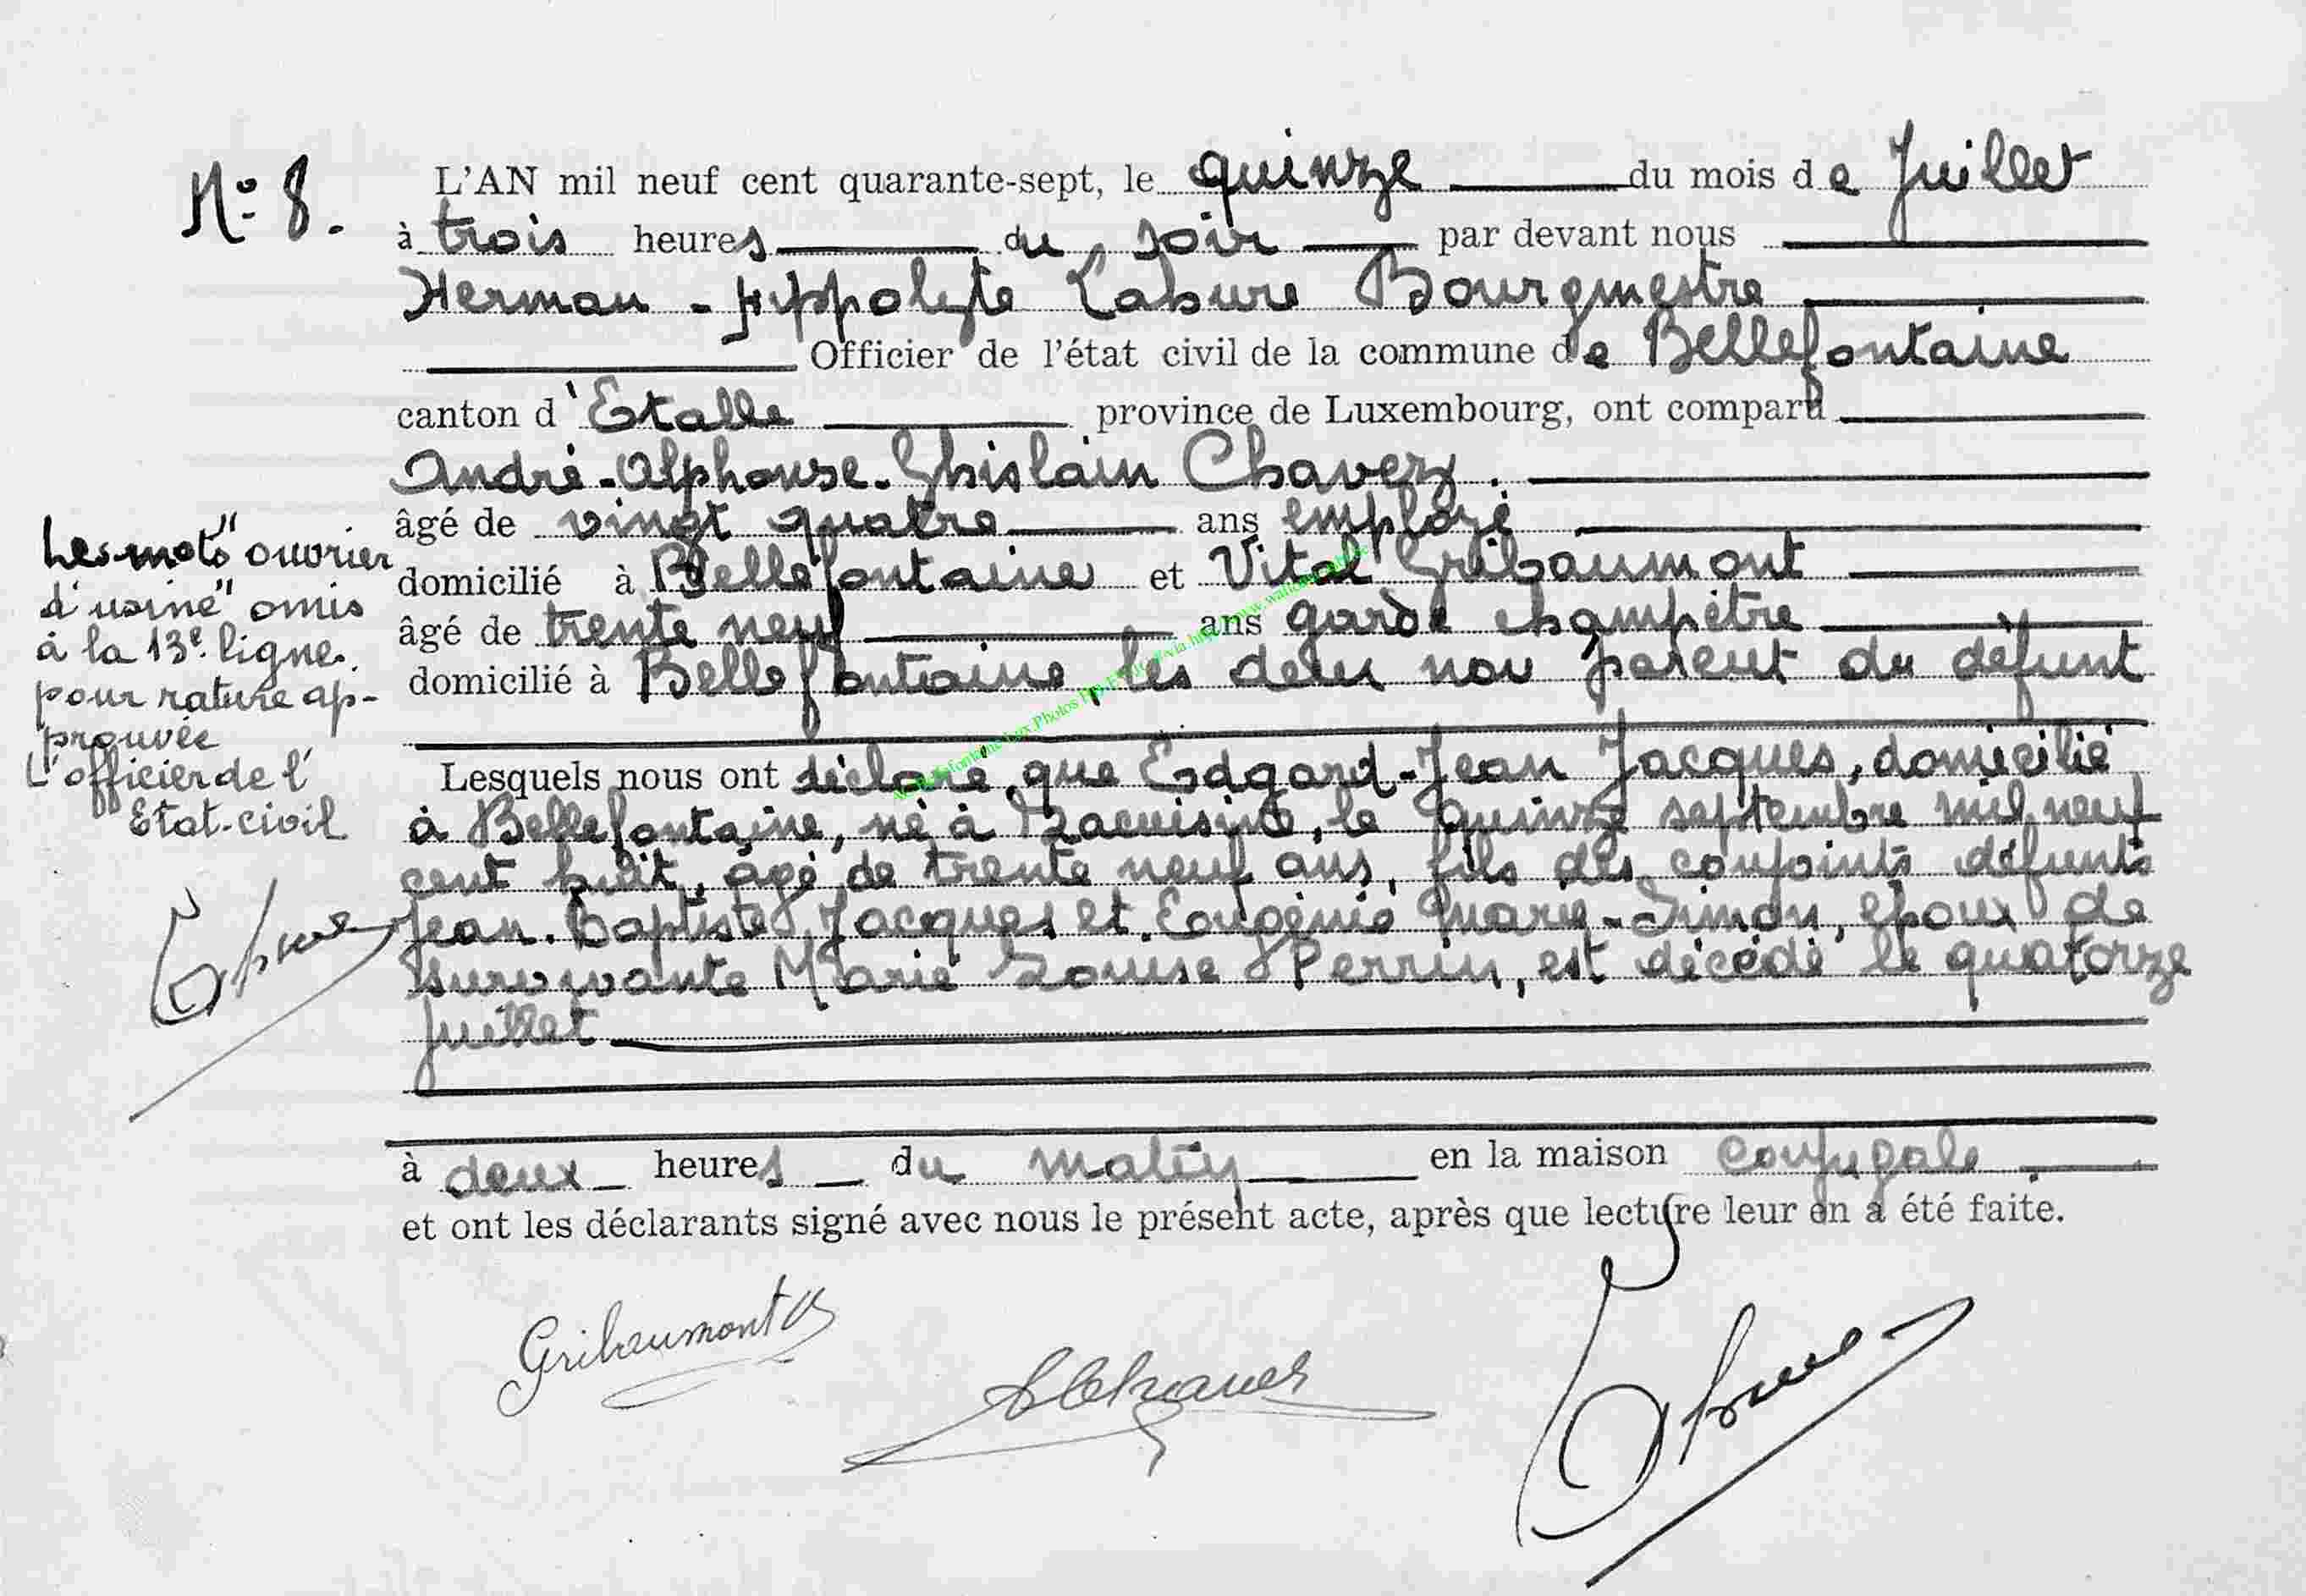 N° 8.
L'AN mil neuf cent quarante-sept, le quinze du mois de Juillet
à trois heures du soir par devant nous
Herman - Hippolyte Labure Bourgmestre
Officier de l'état civil de la commune de Bellefontaine
canton d'Etalle province de Luxembourg, ont comparu
André-Alphonse-Ghislain Chavez.
âgé de vingt quatre ans employé
domicilié à Bellefontaine et Vital Gribaumont
âgé de trente neuf ans garde champêtre
domicilié à Bellefontaine, les deux non parent du défunt
Lesquels nous ont déclaré que Edgard-Jean Jacques, domicilié
à Bellefontaine, né à Lacuisine, le quinze septembre mil neuf
cent huit, âgé de trente neuf ans, fils des conjoints défunts
Jean-Baptiste Jacques et Eugénie Simon, époux de
survivante Marie Louise Perrin, est décédé le quatorze
juillet
à deux heures du matin en la maison conjugale.
et ont les déclarants signé avec nous le présent acte, après que lecture leur en a été faite.
Les mots "ouvrier
d'usine" omis
à la 13e ligne.
pour rature ap-
prouvée
L'officier de l'
Etat-civil
Gribaumont